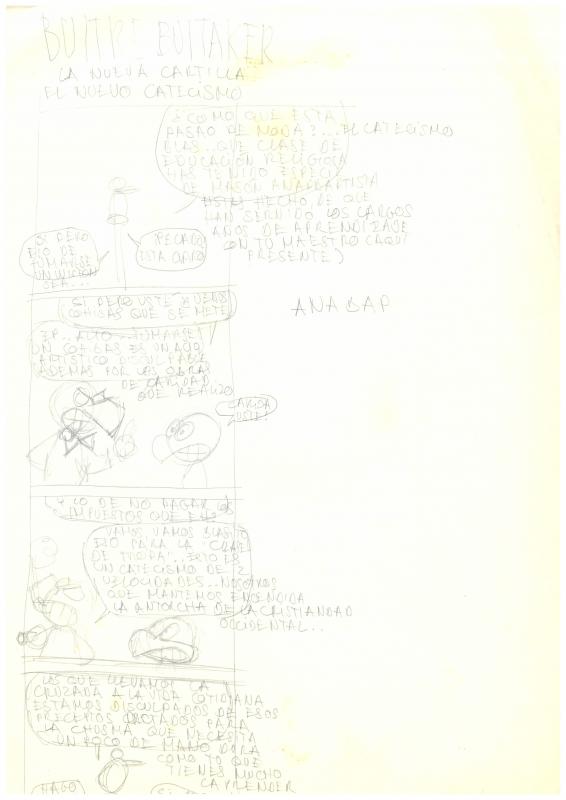 BUITRE BUITAKER
LA NUEVA CARTILLA
EL NUEVO CATECISMO
¿COMO QUE ESTA
PASAO DE MODA?...EL CATECISMO
BLAS..QUE CLASE DE
EDUCACIÓN RELIGIOSA
HAS TENIDO ESPECIE
DE MASÓN ANABAPTISTA
DE QUE
HAN SERVIDO LOS LARGOS
AÑOS DE APRENDIZAJE
CON TU MAESTRO (AQUÍ
PRESENTE)
SI PERO
ESO DE
FUMARSE
SEA...
PECADO
ESTA CLARO
ANABAP
SI PERO USTÉ BUENOS
COHIBAS QUE SE METE
EP..ALTO..FUMARSE
UN COHIBAS ES UN ACTO
ARTÍSTICO DISCULPABLE
ADEMAS POR LAS OBRAS
DE CARIDAD
QUE REALIZO
CARIDA
USTÉ..
Y LO DE NO PAGAR LOS
IMPUESTOS QUE
VAMOS VAMOS BLASITO
ESO PARA LA "CLASE
DE TROPA"..ESTO ES
UN CATECISMO DE 2
VELOCIDADES..NOSOTROS
QUE MANTEMOS ENCENDIDA
LA ANTORCHA DE LA CRISTIANDAD
OCCIDENTAL..
LOS QUE LLEVAMOS LA
CRUZADA A LA VIDA COTIDIANA
ESTAMOS DISCULPADOS DE ESOS
PRECEPTOS DICTADOS PARA
LA CHUSMA QUE NECESITA
UN POCO DE MANO DURA
COMO TU QUE
TIENES MUCHO
QUE APRENDER
HAGO